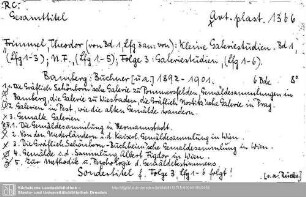 RC:
Gesamttitel Art. plast. 1386
Frimmel, Theodor (von Bd 1, Lfg 3 an: von): Kleine Galeriestudien. Bd 1,
(Lfg 1-3); N.F., (Lfg 1-5); Folge 3: Galeriestudien, (Lfg 1-6).
Bamberg: Buchner [u.a.] 1892-1901. 6 Bde 8°
1,1. Die Gräflich Schönborn'sche Galerie zu Pommersfelden, Gemäldesammlungen in
Bamberg, die Galerie zu Wiesbaden, die Gräflich Nostiz'sche Galerie in Prag.
2. Galerien in Pest, wie die alten Gemälde wandern.
3. Gemalte Galerien
N.F. 1. Die Gemäldesammlung in Hermannstadt.
2. Von den Niederländern in d. Kaiserl. Gemäldesammlung in Wien.
3. Die Gräflich Schönborn-Buchheim'sche Gemäldesammlung in Wien.
4. Gemälde i. d. Sammlung Albert Figdor in Wien.
5. Zur Methodik u. Psychologie d. Gemäldebestimmens.
Sondertitel f. Folge 3, Lfg 1-6 folgt!